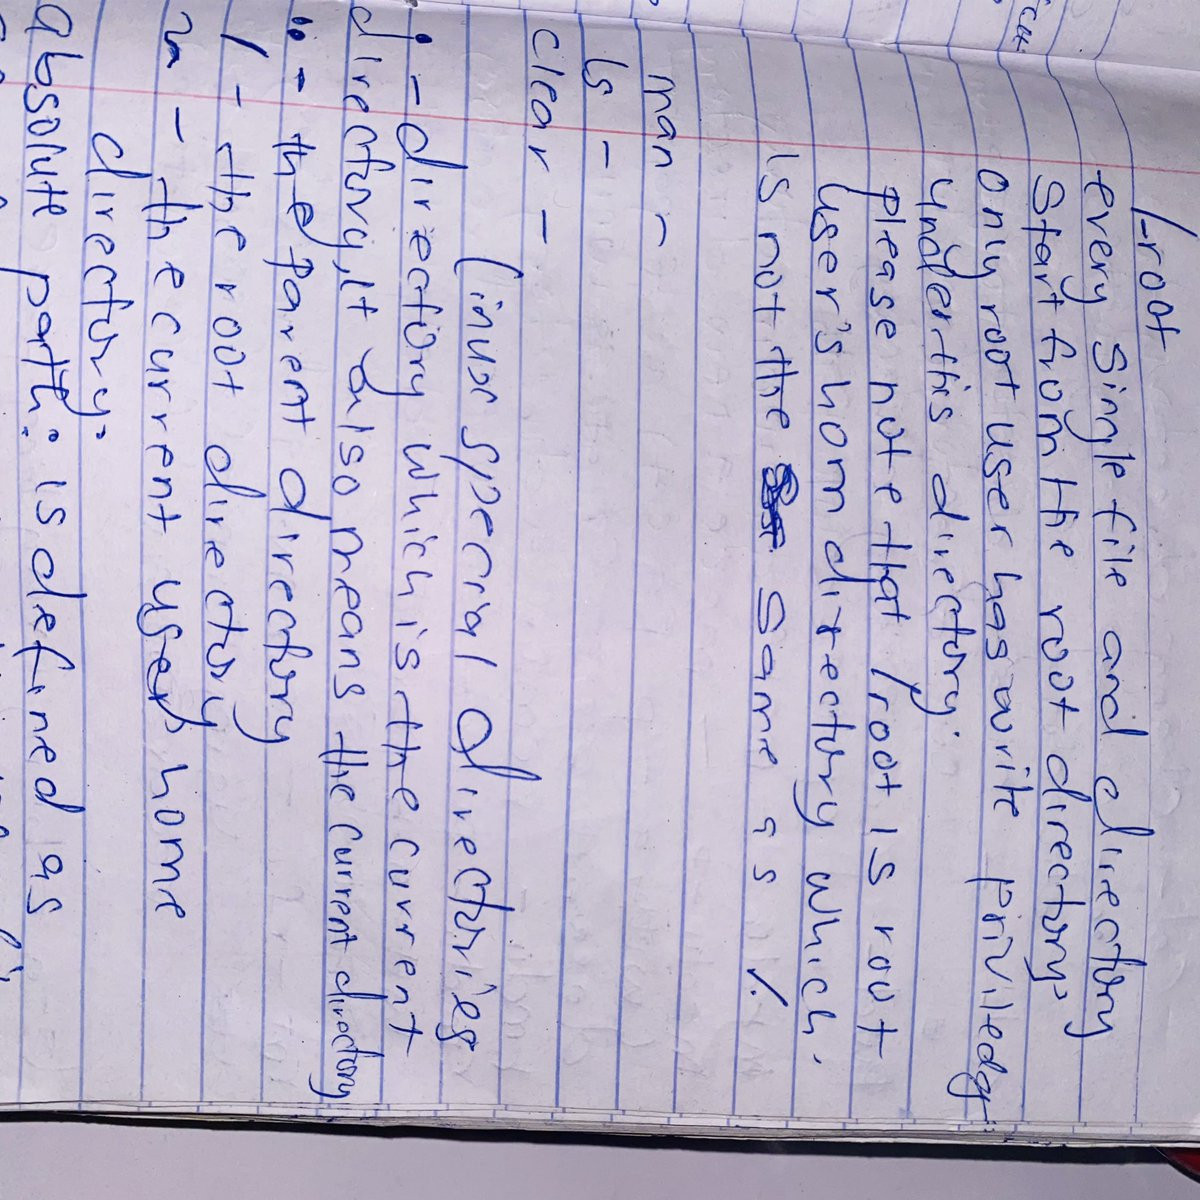 /-root
every single file and directory
start from the root directory.
only root user has write priviledge
under this directory.
please note that /root is root
user's hom directory which.
is not the same as /.
man -
ls -
clear -
Linux special directories
. - directory which is the current
directory, it also means the current directory
.. - the parent directory
/ - the root directory
~ - the current user home
directory.
absolute path: is defined as